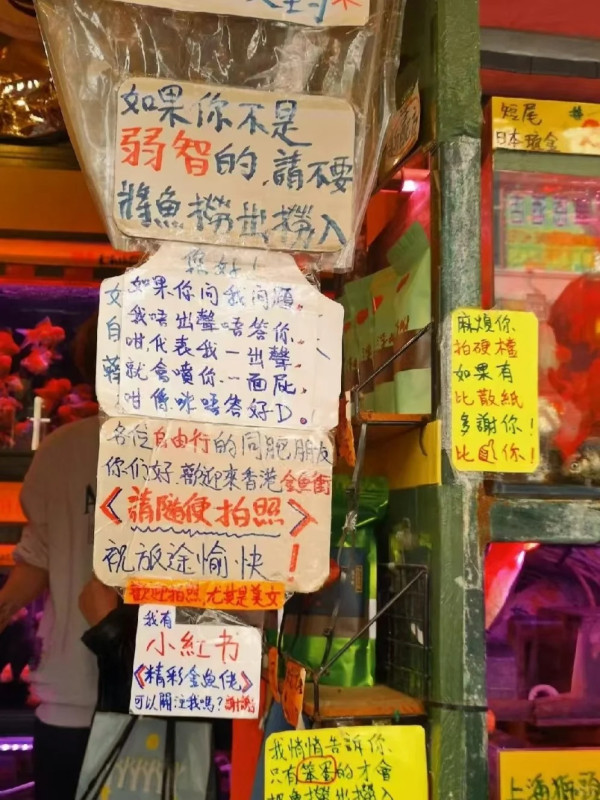 如果你不是
弱智的,請不要
將魚撈出撈入
您好!
如果你問我問題,
我唔出聲唔答你,
咁,代表我一出聲,
就會噴你一面屁,
咁係咪唔答好D。!
各位自由行的同胞朋友
你們好.歡迎來香港金魚街
《請隨便拍照》
祝旅途愉快!
歡迎拍照,尤其是美女
我有
小紅书
《精彩金魚佬》
可以關注我嗎?謝謝
我悄悄告訴你,
只有笨蛋的才會
把魚撈出撈入
短尾
日本琉金
麻煩你,
拍硬檔
如果有
比散紙
多謝你!
比良你!
上海獅頭